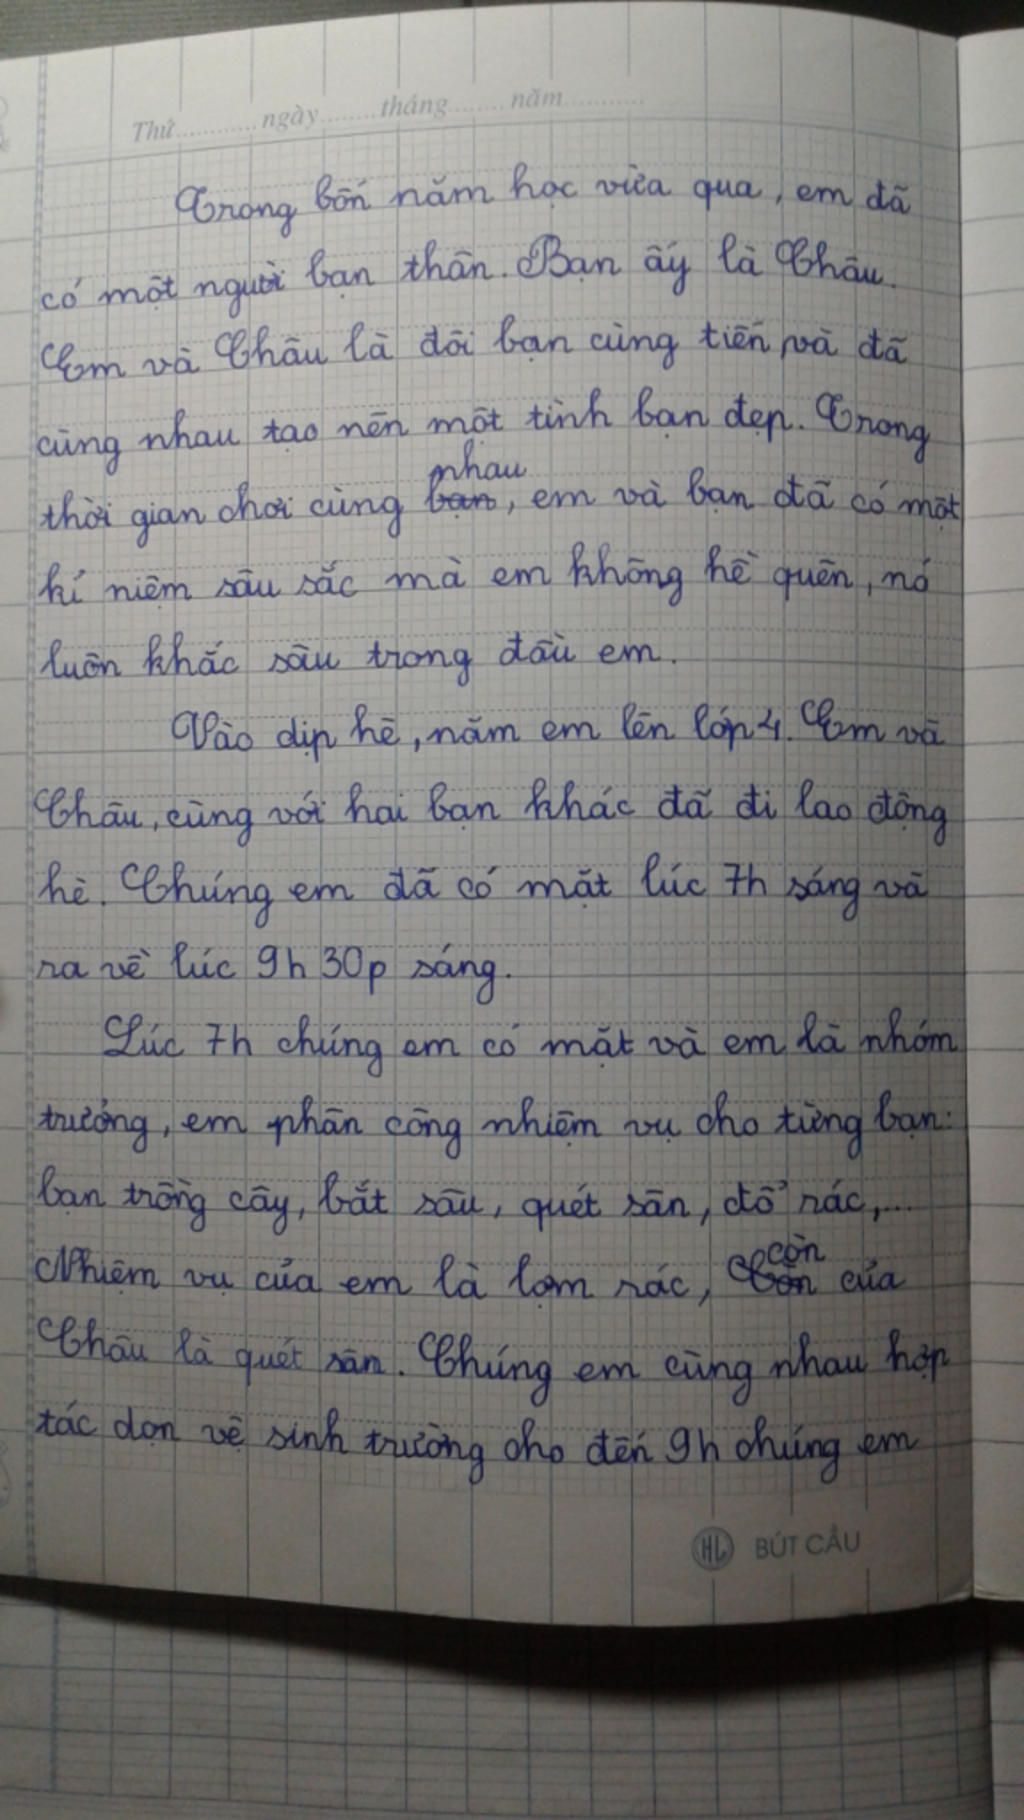 Thứ...........ngày........tháng.......năm...........
Trong bốn năm học vừa qua, em đã
có một người bạn thân. Bạn ấy là Châu.
Em và Châu là đôi bạn cùng tiến và đã
cùng nhau tạo nên một tình bạn đẹp. Trong
nhau
thời gian chơi cùng bạn, em và bạn đã có một
kí niệm sâu sắc mà em không hề quên, nó
luôn khắc sâu trong đầu em.
Vào dịp hè, năm em lên lớp 4. Em và
Châu, cùng với hai bạn khác đã đi lao động
hè. Chúng em đã có mặt lúc 7h sáng và
ra về lúc 9h 30p sáng.
Lúc 7h chúng em có mặt và em là nhóm
trưởng, em phân công nhiệm vụ cho từng bạn:
bạn trồng cây, bắt sâu, quét sân, đổ rác,...
còn
Nhiệm vụ của em là lợm rác, Còn của
Châu là quét sân. Chúng em cùng nhau hợp
tác dọn vệ sinh trường cho đến 9h chúng em
HL BÚT CẦU